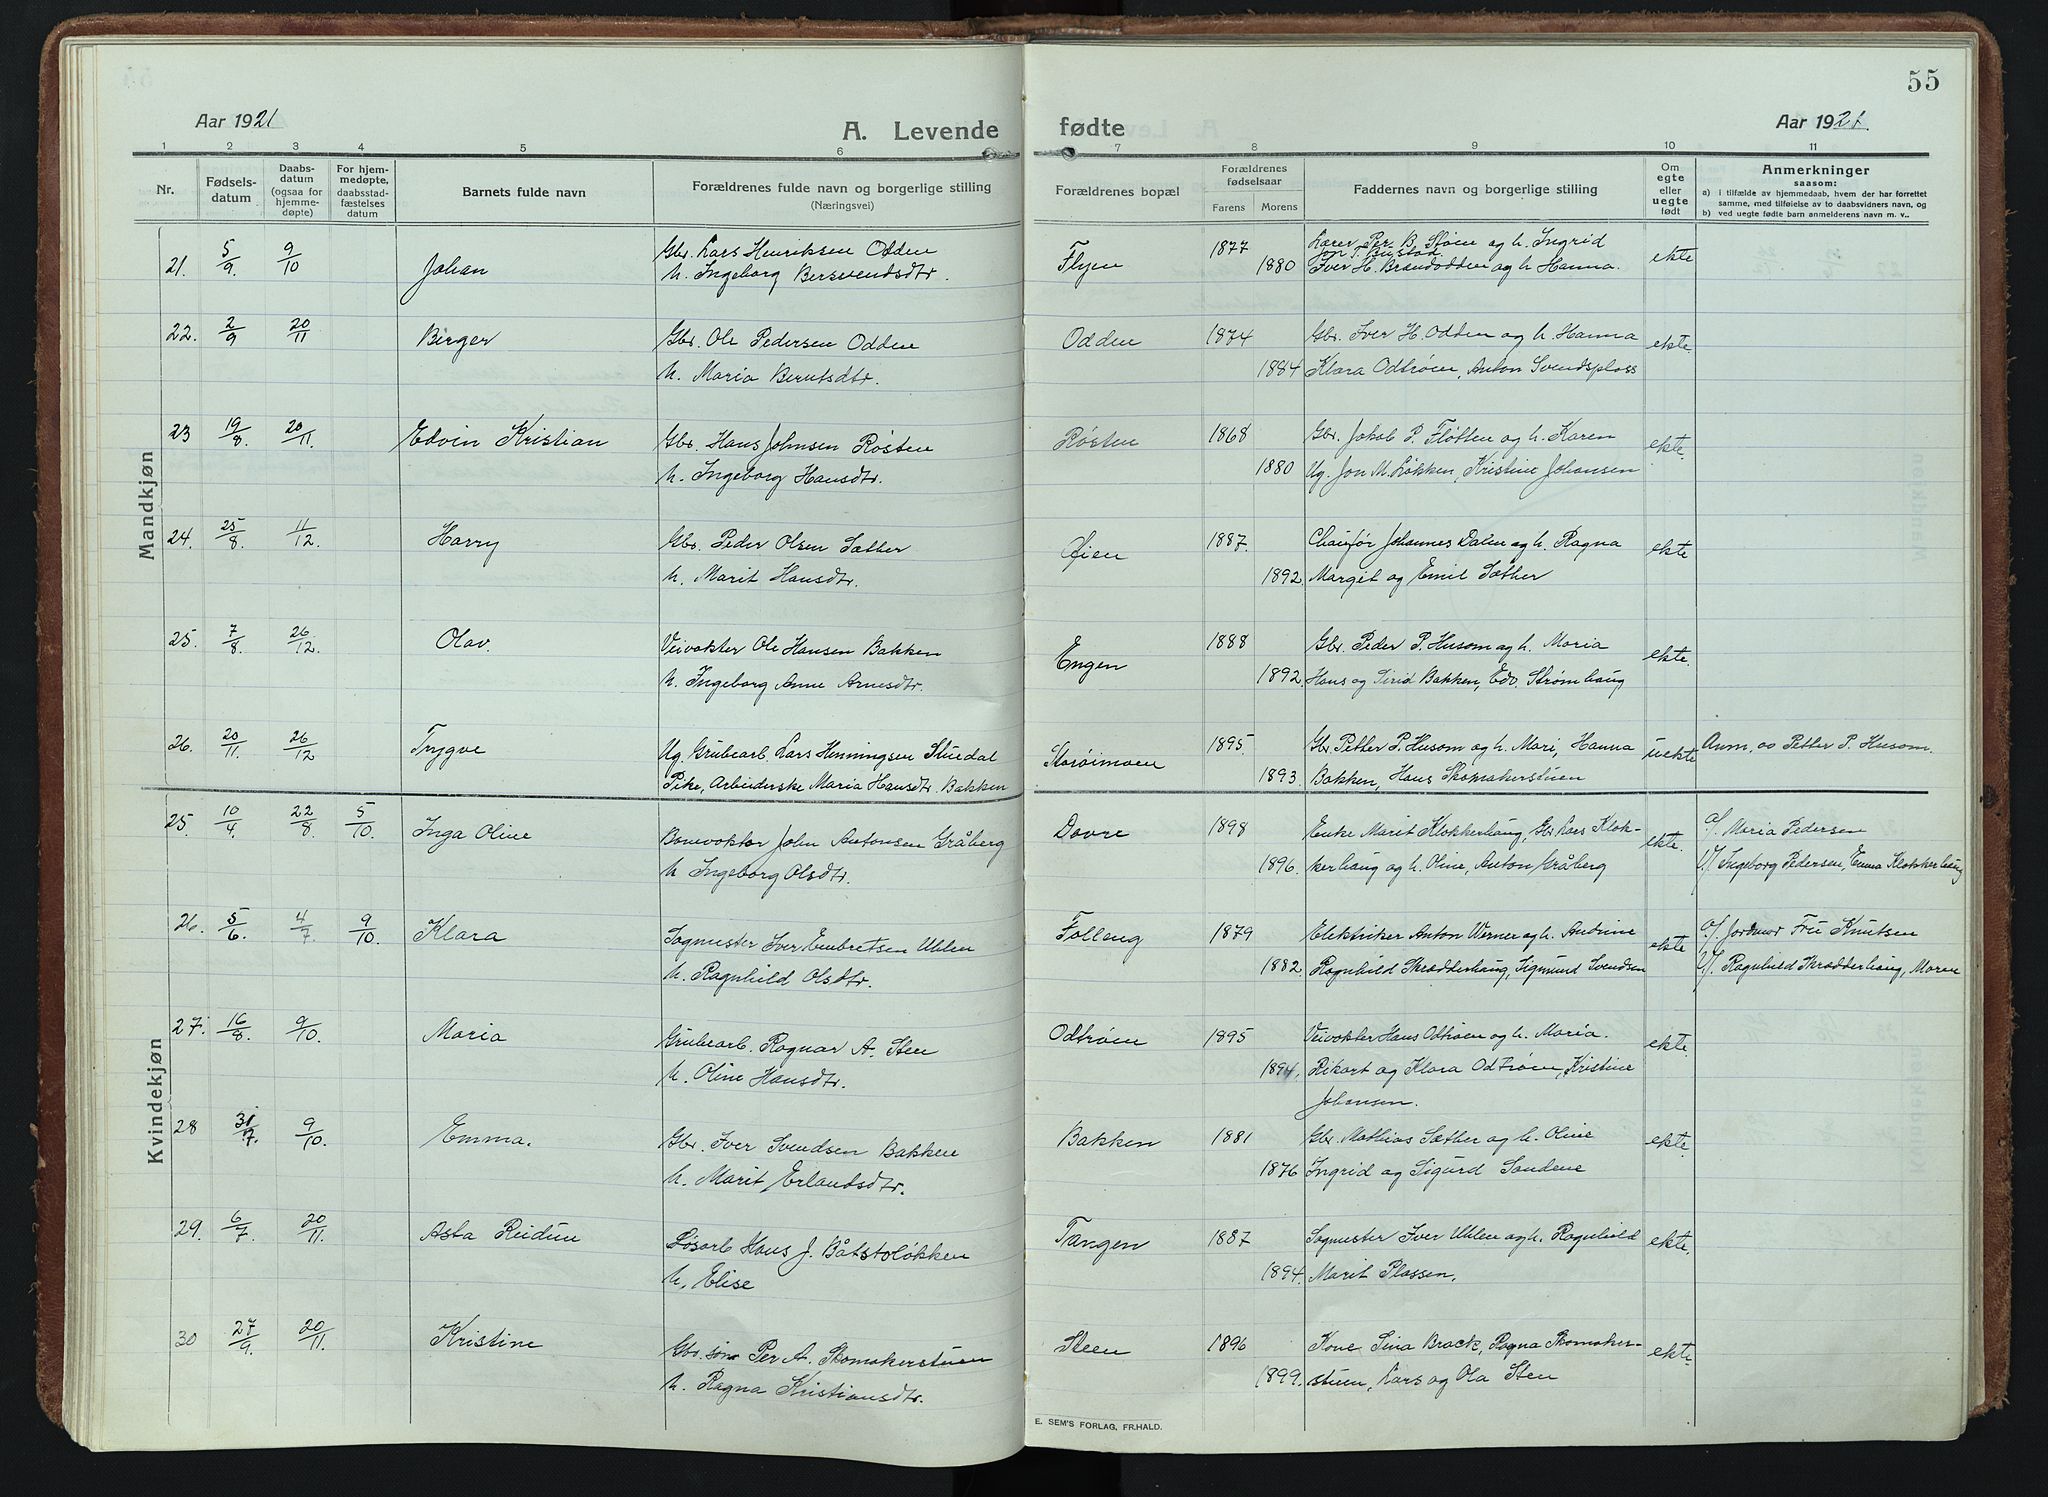 55
Aar 1921
A. Levende
fødte
Aar 1921.
1 2 3 4 5 6 7 8 9 10 11
Nr.
Fødsels-
datum
Daabs-
datum
(ogsaa for
hjemme-
døpte)
For hjem-
medøpte,
daabsstad-
fæstelses
datum
Barnets fulde navn
Forældrenes fulde navn og borgerlige stilling
(Næringsvei)
Forældrenes bopæl
Forældrenes
fødselsaar
Farens Morens
Faddernes navn og borgerlige stilling
Om
egte
eller
uegte
født
Anmerkninger
saasom:
a) i tilfælde av hjemmedaab, hvem der har forrettet
samme, med tilføielse av to daabsvidners navn, og
b) ved uegte fødte barn anmelderens navn m. v..
Mandkjøn
21. 5/9 9/10 Johan
Gbr. Lars Henriksen Odden
h. Ingeborg Bersvendsdtr.
Flyen 1877 1880
Lærer Per B. Støen og h. Ingrid
Jon T. Bustad
Iver H. Brandodden og h. Hanna.
ekte
22. 2/9 20/11 Birger
Gbr. Ole Pedersen Odden
h. Maria Berntsdtr.
Odden 1874 1884
Gbr. Iver H. Odden og h. Hanna
Klara Odtrøen, Anton Svendsplass
ekte.
23 19/8. 20/11. Edvin Kristian
Gbr. Hans Johnsen Røsten
h. Ingeborg Hansdtr.
Røsten 1868 1880
Gbr. Jakob P. Fløtten og h. Karen
Ug. Jon M. Løkken, Kristine Johansen
ekte.
24. 25/8. 11/12. Harry
Gbr. Peder Olsen Sæther
h. Marit Hansdtr.
Øien 1887. 1892.
Chaufør Johannes Dalen og h. Ragna
Margit og Emil Sæther
ekte
25. 7/8. 26/12. Olav.
Veivokter Ole Hansen Bakken
h. Ingeborg Anne Arnesdtr.
Engen 1888 1892.
Gbr. Peder P. Husom og h. Maria
Hans og Sirid Bakken, Edv. Strømhaug
ekte.
26. 20/11. 26/12 Trygve
Ug. Grubearb. Lars Henningsen Stuedal
Pike, Arbeiderske Maria Hansdtr. Bakken
Storøimoen 1895. 1893.
Gbr. Petter P. Husom og h. Mari, Hanna
Bakken, Hans Skomakerstuen
uekte
Anm. av Petter P. Husom.
Kvindekjøn
25. 10/4 22/8 5/10 Inga Oline
Banevokter John Antonsen Gråberg
h Ingeborg Olsdtr.
Dovre 1898 1896.
Enke Marit Klokkerhaug, Gbr. Lars Klok-
kerhaug og h. Oline, Anton Gråberg
ekte.
a/. Maria Pedersen
b/. Ingeborg Pedersen, Emma Klokkerhaug
26. 5/6. 4/7 9/10. Klara
Sagmester Iver Embretsen Uhlen
h. Ragnhild Olsdtr.
Folleng 1879 1882.
Elektriker Anton Werner og h. Andrine
Ragnhild Skrædderhaug, Sigmund Svendsen
ekte.
a/. Jordmor Fru Knutsen
b/. Ragnhild Skrædderhaug, Moren
27. 16/8. 9/10. Maria
Grubearb. Ragnar A. Sten
h. Oline Hansdtr.
Odtrøen 1895 1894.
Veivokter Hans Odtrøen og h. Maria.
Rikart og Klara Odtrøen, Kristine
Johansen.
ekte.
28 31/7. 9/10. Emma.
Gbr. Iver Svendsen Bakken
h. Marit Erlandsdtr.
Bakken 1881 1876
Gbr. Mathias Sæther og h. Oline
Ingrid og Sigurd Sandene
ekte.
29. 6/7. 20/11. Asta Reidun
Løsarb Hans J. Båtstøløkken
h. Elise
Tangen 1887 1894.
Sagmester Iver Uhlen og h. Ragnhild
Marit Plassen,
ekte.
30 27/9. 20/11. Kristine
Gbr. søn Per A. Skomakerstuen
h. Ragna Kristiansdtr.
Steen 1896 1899.
Kone Sina Brack, Ragna Skomaker-
stuen, Lars og Ola Sten
ekte.
E. SEM'S FORLAG, FR.HALD.